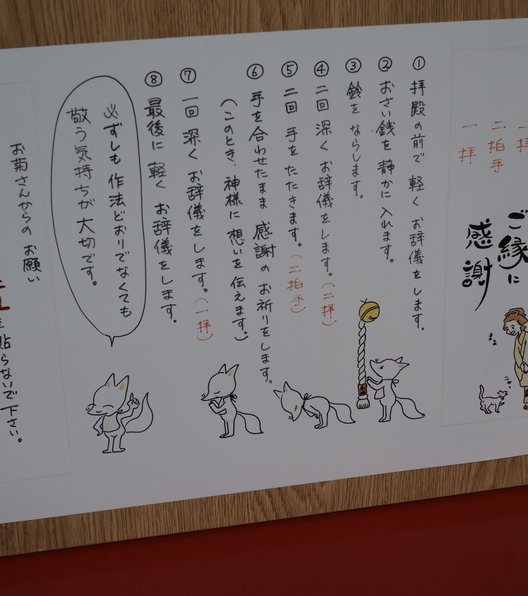 二拍手
一拝
ご縁に
感謝
① 拝殿の前で 軽く お辞儀をします。
② おさい銭を 静かに 入れます。
③ 鈴を ならします。
④ 二回 深く お辞儀をします。(二拝)
⑤ 二回 手を たたきます。(二拍手)
⑥ 手を合わせたまま 感謝の お祈りをします。
(このとき、神様に 想いを 伝えます。)
⑦ 一回 深く お辞儀をします。(一拝)
⑧ 最後に 軽く お辞儀をします。
必ずしも 作法どおりでなくても
敬う気持ちが大切です。
お菊さんからの お願い
を貼らないで下さい。